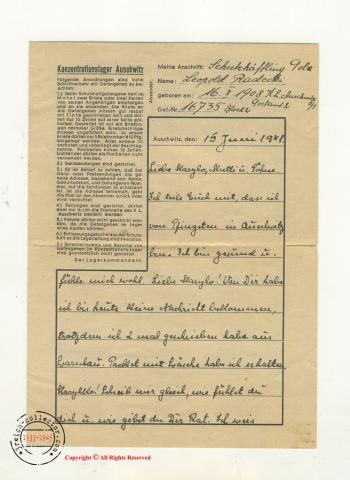 Konzentrationslager Auschwitz
Folgende Anordnungen sind beim
Schriftverkehr mit Gefangenen zu
beachten:
1.) Jeder Schutzhaftgefangene darf im
Monat zwei Briefe oder zwei Karten
von seinen Angehörigen empfangen
und an sie absenden. Die Briefe an
die Gefangenen müssen gut lesbar
mit Tinte geschrieben sein und dürfen
nur 15 Zeilen auf einer Seite enthalten.
Gestattet ist nur ein Briefbogen
normaler Größe. Briefumschläge
müssen ungefüttert sein. In einem
Briefe dürfen nur 5 Briefmarken
beigelegt werden. Alles andere ist
verboten und unterliegt der Beschlagnahme.
Postkarten haben 10 Zeilen.
Lichtbilder dürfen als Postkarten nicht
verwendet werden.
2.) Geldsendungen sind gestattet.
3.) Es ist darauf zu achten, daß bei
Geld- oder Postsendungen die genaue
Adresse, bestehend aus: Name,
Geburtsdatum, und Gefangenen-Nummer,
auf die Sendungen zu schreiben
ist.
4.) Zeitungen sind gestattet,
5.) Pakete dürfen nicht geschickt werden,
da die Gefangenen im Lager
alles kaufen können.
6.) Entlassungsgesuche aus der Schutzhaft
an die Lagerleitung sind zwecklos.
7.) Sprecherlaubnis und Besuche von
Gefangenen im Konzentrations-Lager
sind grundsätzlich nicht gestattet.
Der Lagerkommandant.
Absender:
Meine Anschrift: Schutzhäftling
Name: Leopold Radecki
geboren am: 16. X 1908 K.L. Auschwitz
Gef.-Nr. 16735 Block Postamt 2
Auschwitz, den: 15 Juni 1941
Liebe Maryla, Mutti u. Söhne.
Ich teile Euch mit, das ich
von Pfingsten in Auschwitz
bin. Ich bin gesund u.
fühle mich wohl. Liebe Marylo! Von Dir habe
ich bis heute keine Nachricht bekommen,
trotzdem ich 2 mal geschrieben habe aus
Warschau. Packet mit Wäsche habe ich erhalten,
Schreib mir gleich, wie fühlst du
dich u. wie gibst du Dir Rat. Ich weis
reich-collector.com
1933-1945
Copyright © All Rights Reserved